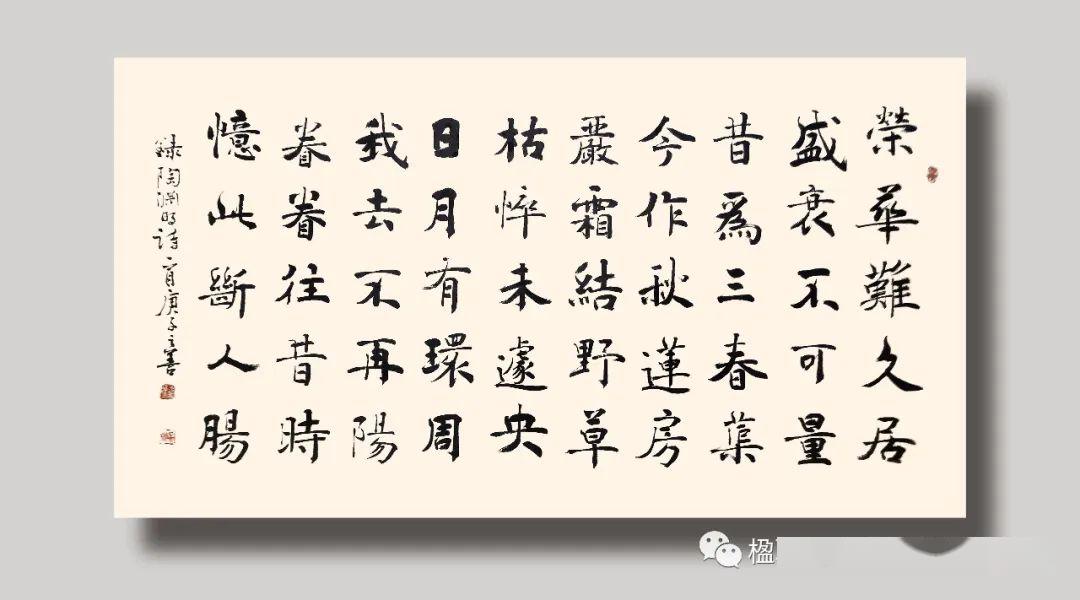 榮華難久居
盛衰不可量
昔爲三春蕖
今作秋蓮房
嚴霜結野草
枯悴未遽央
日月有環周
我去不再陽
眷眷往昔時
憶此斷人腸
録陶渊明詩 庚子 書
楹